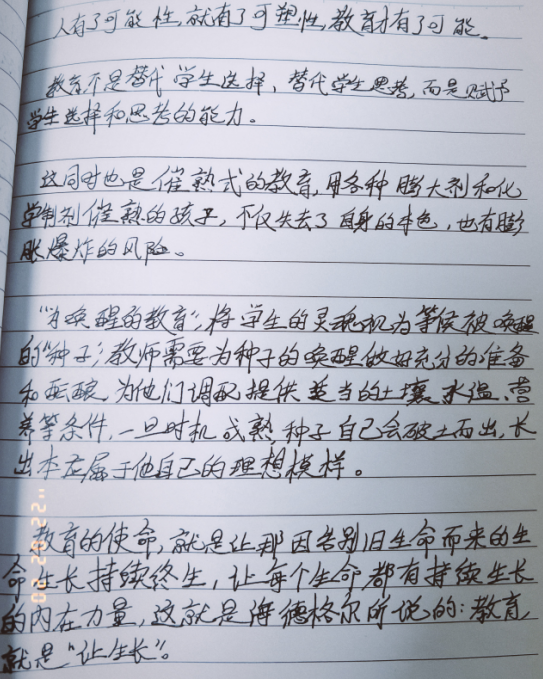 人有了可能性,就有了可塑性,教育才有了可能。
教育不是替代学生选择、替代学生思考,而是赋予
学生选择和思考的能力。
这同时也是催熟式的教育,用各种膨大剂和化
学制剂催熟的孩子,不仅失去了自身的本色,也有膨
胀爆炸的风险。
“为唤醒的教育”,将学生的灵魂视为等候被唤醒
的“种子”,教师需要为种子的唤醒做好充分的准备
和酝酿,为他们调配提供适当的土壤、水温、营
养等条件,一旦时机成熟,种子自己会破土而出,长
出本应属于他自己的理想模样。
教育的使命,就是让那因告别旧生命而来的生
命生长持续终生,让每个生命都有持续生长
的内在力量,这就是海德格尔所说的:教育,
就是“让生长”。